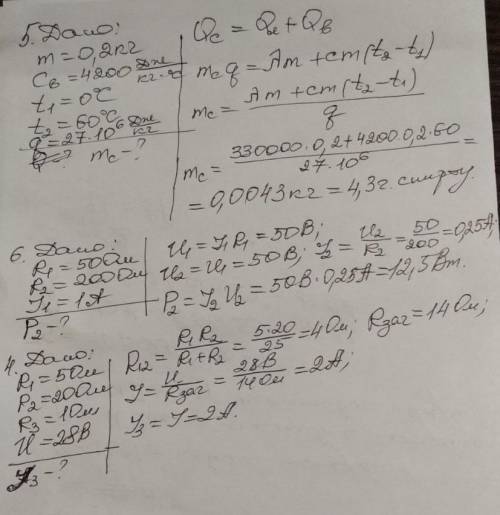 5. Дано:
m = 0,2 кг
Cв = 4200 Дж/кг·°C
t₁ = 0°C
t₂ = 60°C
q = 27·10⁶ Дж/кг
mc - ?
Qc = + Qв
mc q = λm + cm(t₂ - t₁)
mc = (λm + cm(t₂ - t₁))/q
mc = (330000·0,2 + 4200·0,2·60)/(27·10⁶) =
= 0,0043 кг = 4,3 г. спирту.
6. Дано:
R₁ = 50 Ом
R₂ = 200 Ом
I₁ = 1 A
P₂ - ?
U₁ = I₁R₁ = 50 В;
U₂ = U₁ = 50 В; I₂ = U₂/R₂ = 50/200 = 0,25 A;
P₂ = I₂ U₂ = 50 В · 0,25 A = 12,5 Вт.
4. Дано:
R₁ = 5 Ом
R₂ = 20 Ом
R₃ = 10 м
U = 28 В
I₃ - ?
R₁₂ = R₁R₂/(R₁+R₂) = 5·20/25 = 4 Ом; Rзаг = 14 Ом;
I = U/Rзаг = 28 В/14 Ом = 2 A;
I₃ = I = 2 A.